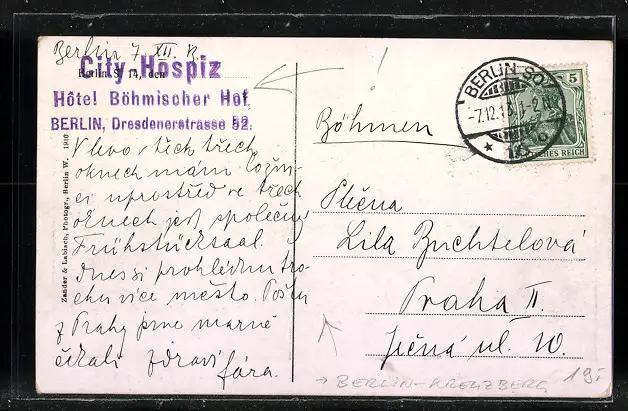 Berlin 7. XII.
Berlin S. 14, den
City-Hospiz
Hôtel Böhmischer Hof,
BERLIN, Dresdenerstrasse 52.
Vlevo v těch třech
oknech mám
uprostřed ve třech
oknech jest společný
Frühstücksaal.
Dnes si prohlédnu tro-
chu více město. Poštu
z Prahy jsme marně
čekali Zdraví
Jára.
Zander & Labisch, Photogr., Berlin W. 1910
!
BERLIN SO
-7.12.1
*
5
DEUTSCHES REICH
Böhmen
Slečna
Lila Buchtelová
Praha II.
Ječná ul. 10.
→ BERLIN-KREUZBERG
19,-